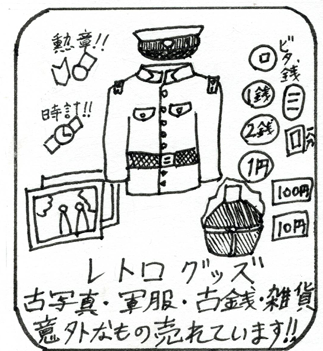 勲章!!
時計!!
ビタ銭
1銭
2銭
1円
一分
100円
10円
レトログッズ
古写真・軍服・古銭・雑貨
意外なもの売れています!!